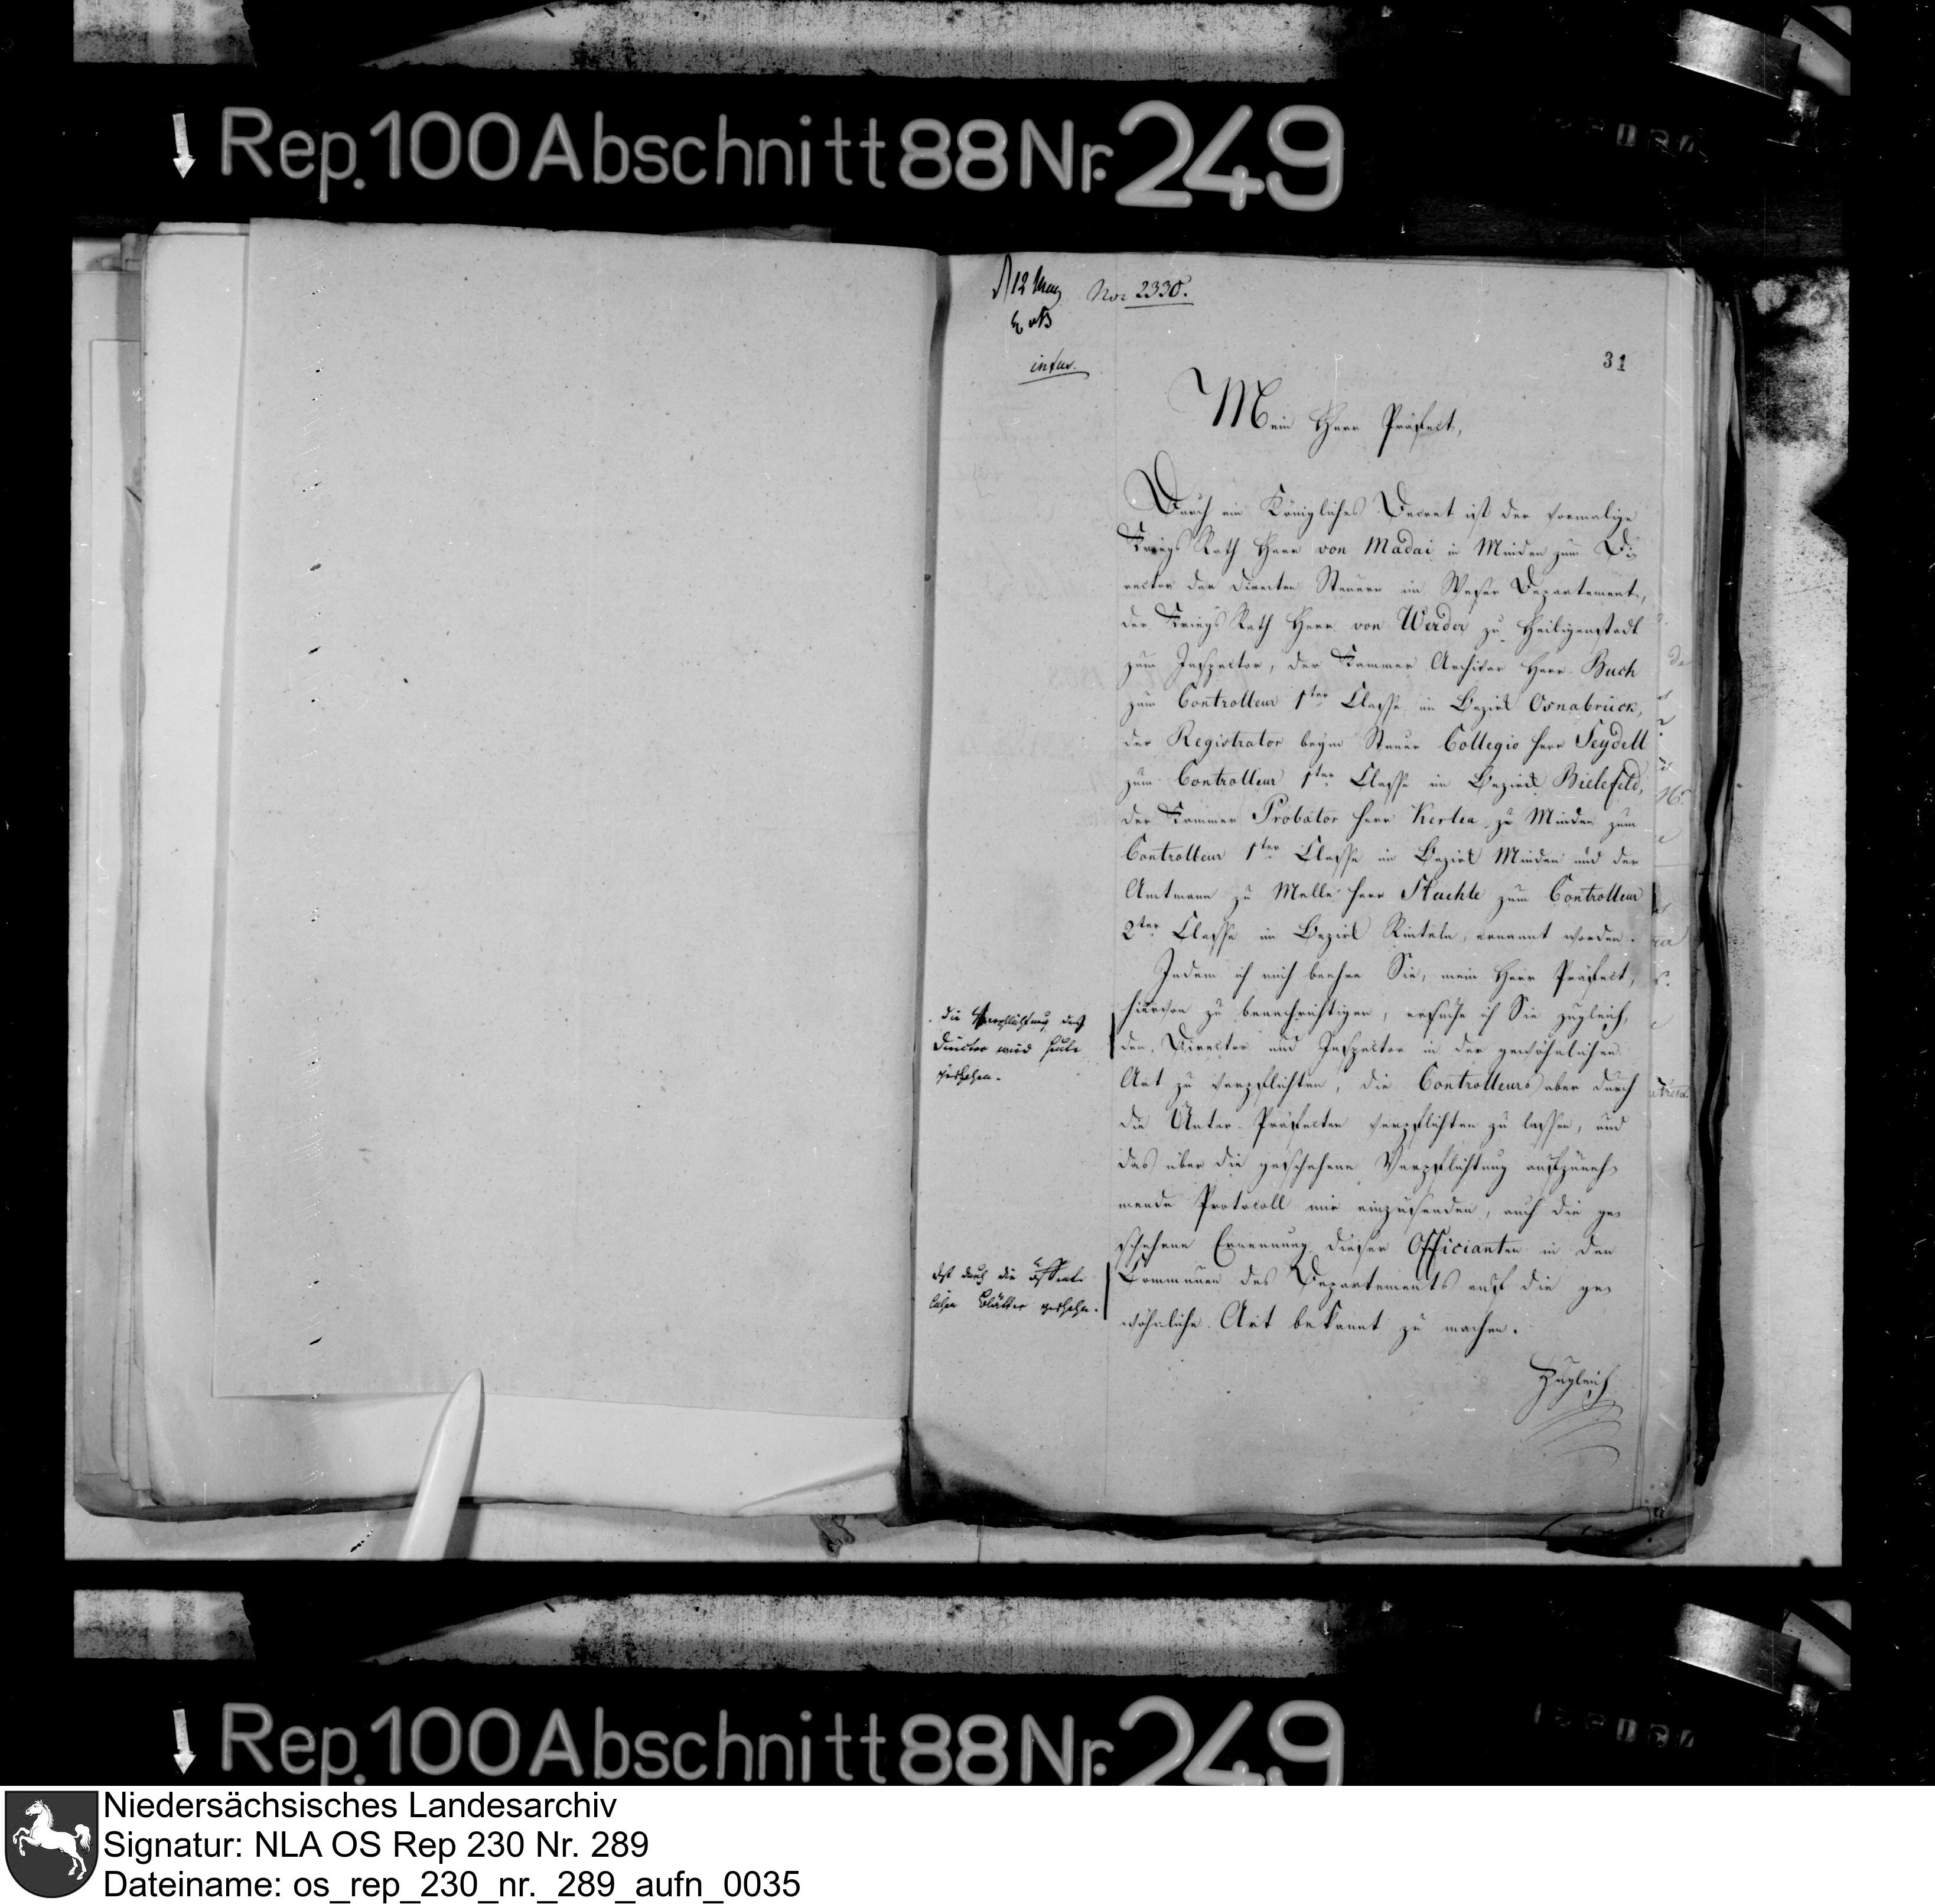 Rep. 100 Abschnitt 88 Nr. 249
12 May
Nor 2330.
31
Mein Herr Präfect,
Durch ein Königliches Decret ist der vormalige
Kriegs Rath Herr von Madai in Minden zum Di-
rector der directen Steuern im Weser Departement,
der Kriegs Rath Herr von Werder zu Heiligenstadt
zum Inspector, der Kammer Archivar Herr Buch
zum Controlleur 1ter Classe im Bezirk Osnabrück,
der Registrator beym Steuer Collegio Herr Seydell
zum Controlleur 1ter Classe im Bezirk Bielefeld,
der Kammer Probator Herr zu Minden zum
Controlleur 1ter Classe im Bezirk Minden und der
Amtmann zu Melle Herr Stuehle zum Controlleur
2ter Classe im Bezirk Rinteln, ernannt worden.
Indem ich mich beehre Sie, mein Herr Präfect,
hiervon zu benachrichtigen, ersuche ich Sie zugleich,
den Director und Inspector in der gewöhnlichen
Art zu verpflichten, die Controlleurs aber durch
die Unter-Präfecten verpflichten zu lassen, und
das über die geschehene Verpflichtung aufzuneh-
mende Protocoll mir einzusenden, auch die ge-
schehene Ernennung dieser Officianten in den
Communen des Departements auf die ge-
wöhnliche Art bekannt zu machen.
Zugleich
die Verpflichtung des
Director wird heute
geschehen.
Ist durch die öffent-
lichen Blätter geschehen.
Rep. 100 Abschnitt 88 Nr. 249
Niedersächsisches Landesarchiv
Signatur: NLA OS Rep 230 Nr. 289
Dateiname: os_rep_230_nr._289_aufn_0035